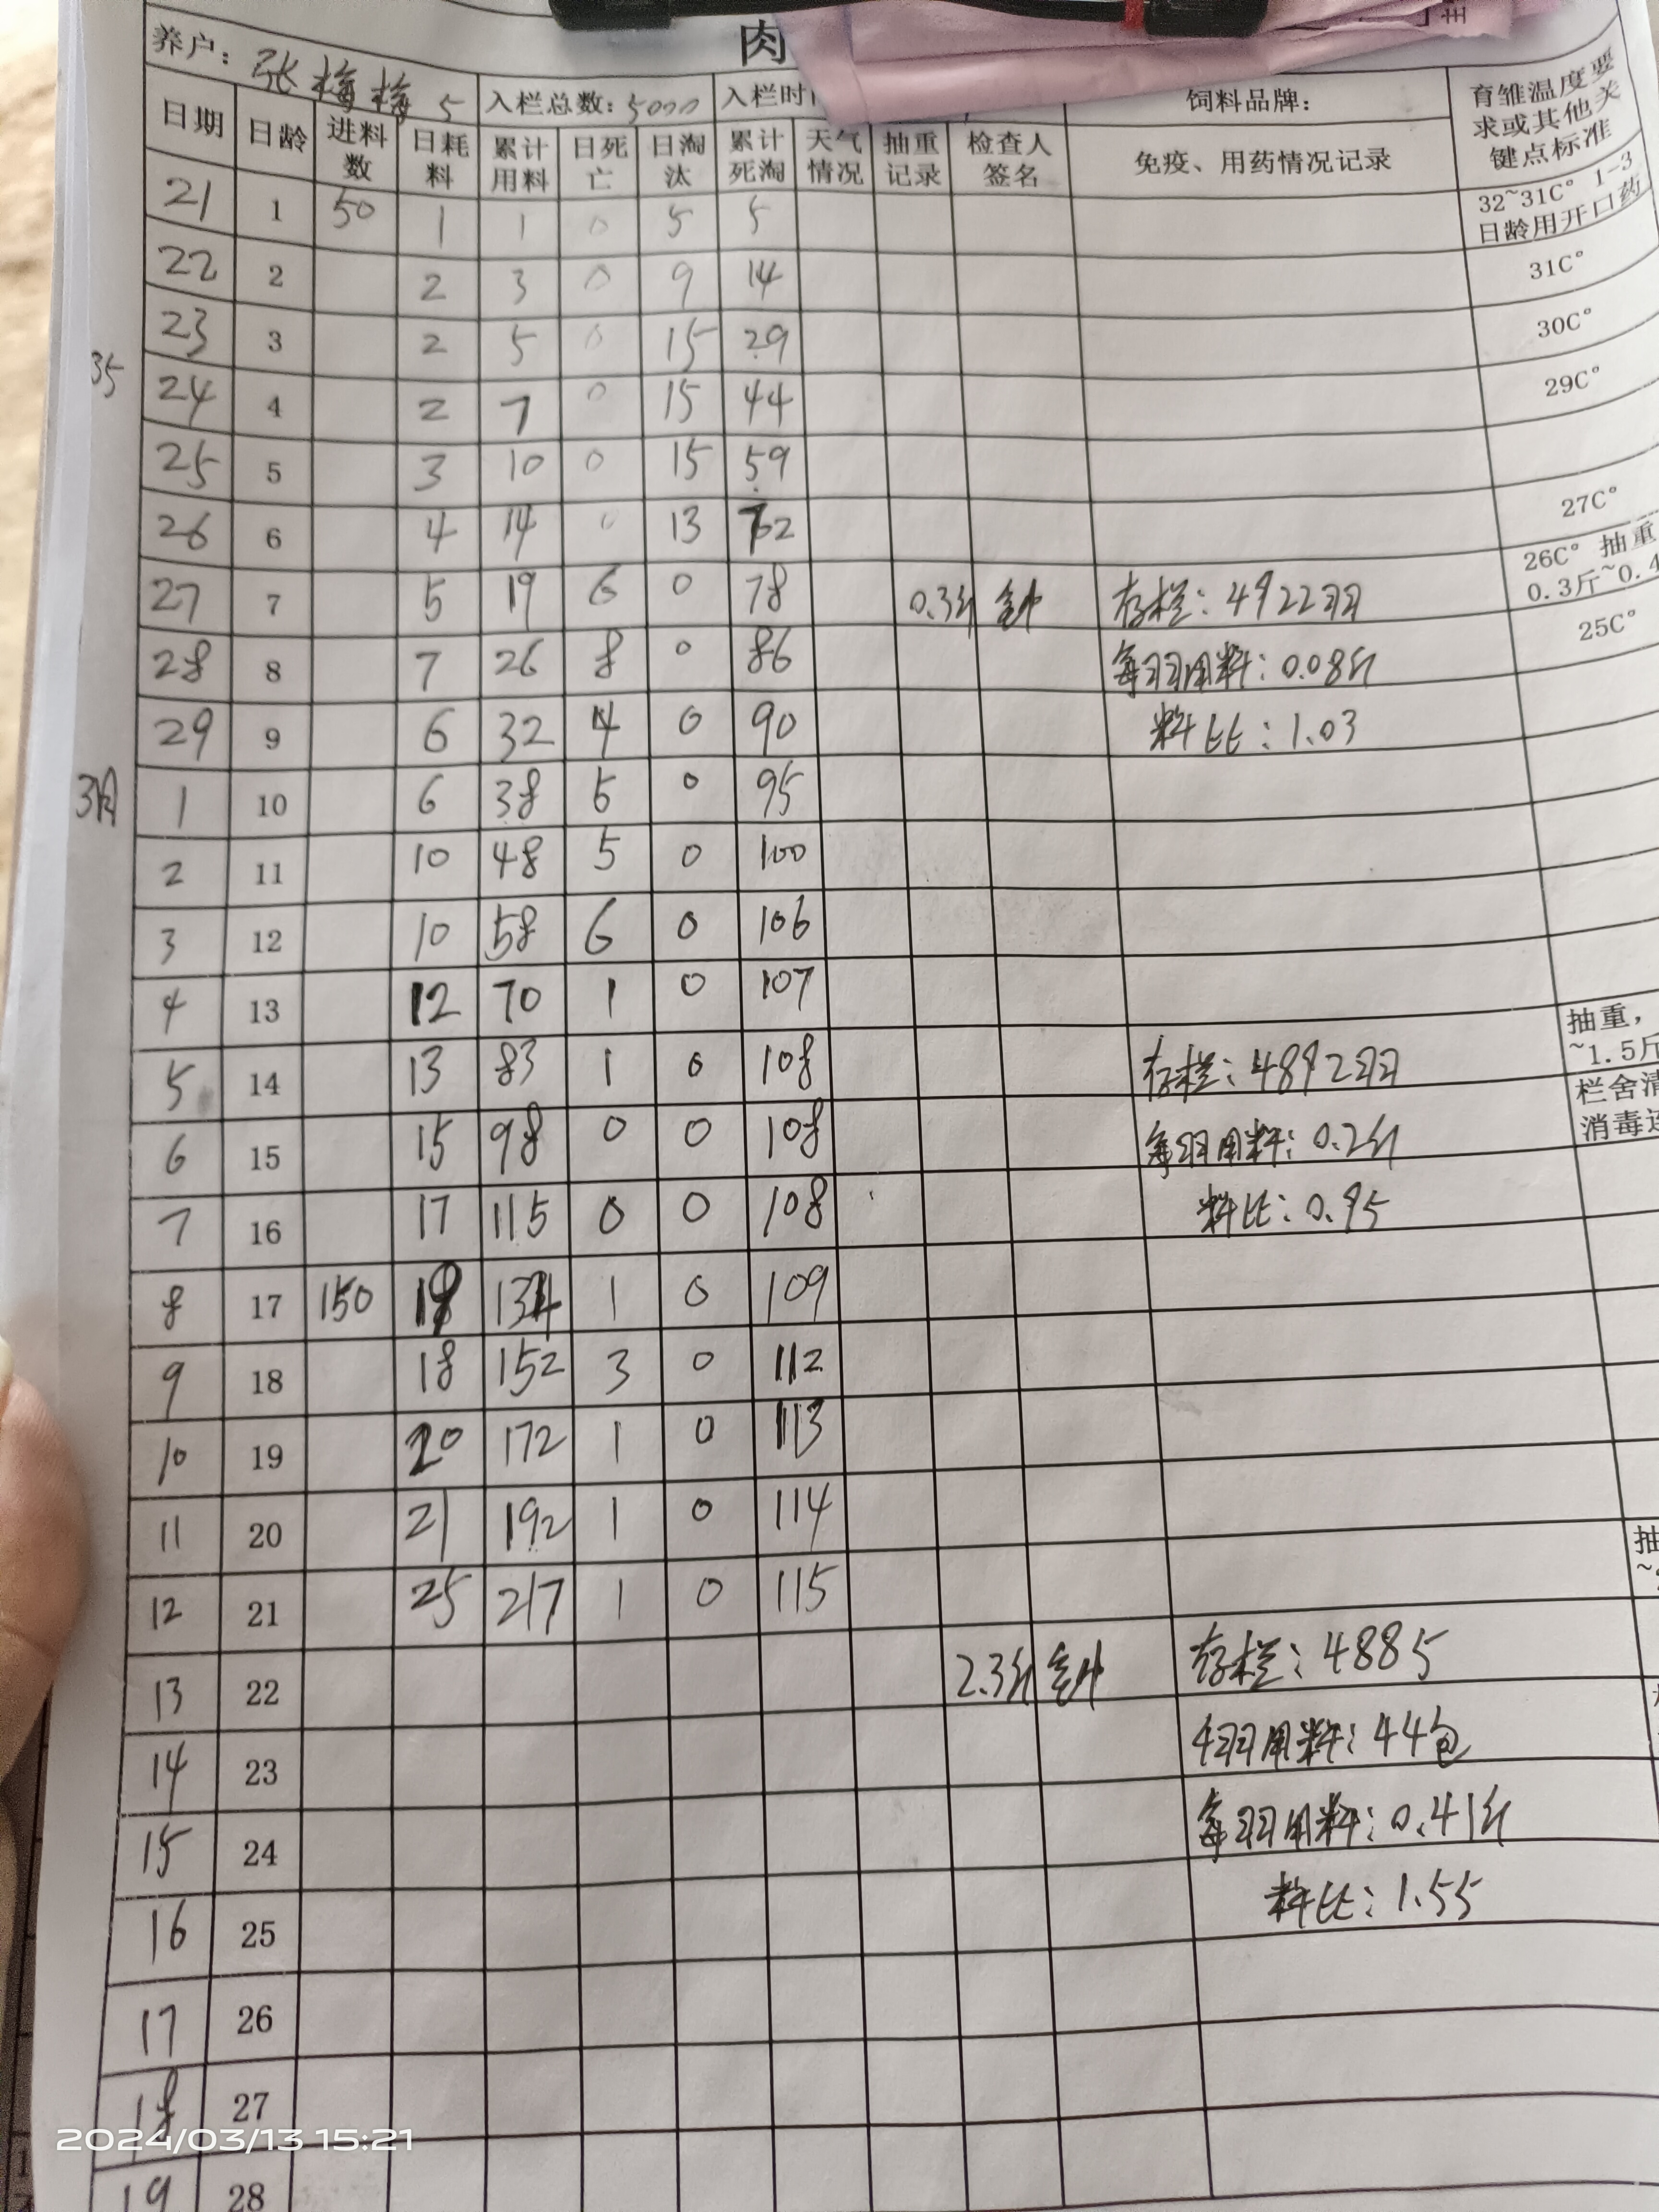 肉
养户：张梅梅 5 入栏总数：5000 入栏时 饲料品牌： 育雏温度要求或其他关键点标准
日期 日龄 进料数 日耗料 累计用料 日死亡 日淘汰 累计死淘 天气情况 抽重记录 检查人签名 免疫、用药情况记录
21 1 50 1 1 0 5 5 32~31C° 1-3日龄用开口药
22 2 2 3 0 9 14 31C°
23 3 2 5 0 15 29 30C°
35
24 4 2 7 0 15 44 29C°
25 5 3 10 0 15 59
26 6 4 14 0 13 72 27C°
27 7 5 19 6 0 78 0.3斤 存栏：4922羽 26C° 抽重0.3斤~0.4
28 8 7 26 8 0 86 每羽用料：0.08斤 25C°
29 9 6 32 4 0 90 料比：1.03
3月 1 10 6 38 5 0 95
2 11 10 48 5 0 100
3 12 10 58 6 0 106
4 13 12 70 1 0 107
5 14 13 83 1 0 108 存栏：4892羽 抽重，~1.5斤
6 15 15 98 0 0 108 每羽用料：0.2斤 栏舍清消毒
7 16 17 115 0 0 108 料比：0.95
8 17 150 19 134 1 0 109
9 18 18 152 3 0 112
10 19 20 172 1 0 113
11 20 21 192 1 0 114
12 21 25 217 1 0 115 抽
13 22 2.3斤 存栏：4885
14 23 羽用料：44包
15 24 每羽用料：0.41斤
16 25 料比：1.55
17 26
18 27
19 28
2024/03/13 15:21